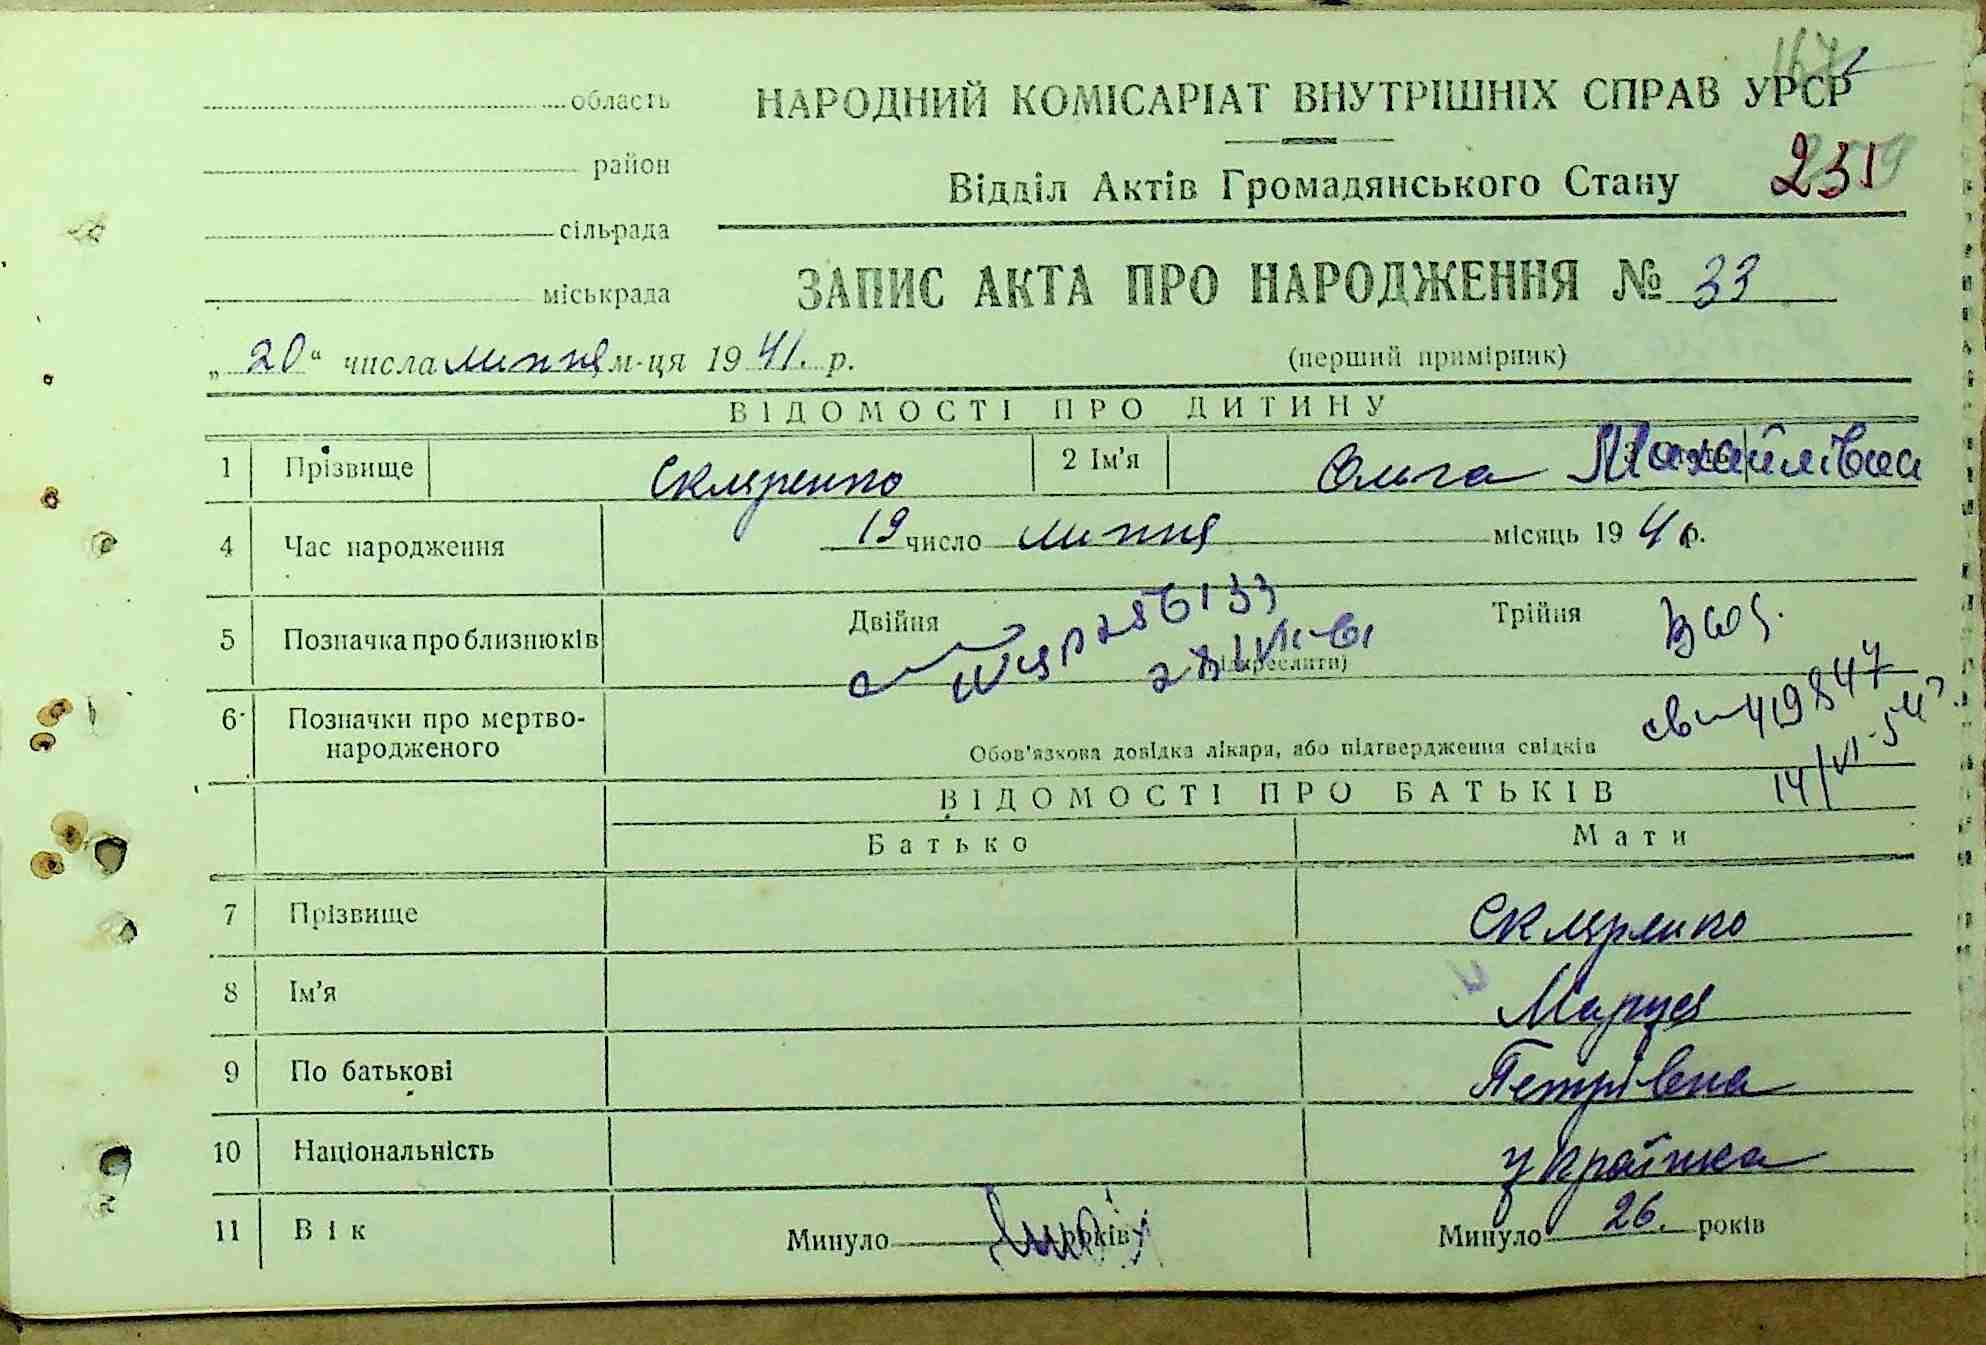 167
область
НАРОДНИЙ КОМІСАРІАТ ВНУТРІШНІХ СПРАВ УРСР
район
Відділ Актів Громадянського Стану
231
сільрада
міськрада
ЗАПИС АКТА ПРО НАРОДЖЕННЯ № 33
„ 20 “ числа липня м-ця 1941. р.
(перший примірник)
ВІДОМОСТІ ПРО ДИТИНУ
1 Прізвище Скляренко 2 Ім'я Ольга Михайлівна
4 Час народження 19 число липня місяць 1941 р.
5 Позначка про близнюків Двійня Трійня
(підкреслити)
286133
6 Позначки про мертво-
народженого
Обов'язкова довідка лікаря, або підтвердження свідків
14/VI-54
ВІДОМОСТІ ПРО БАТЬКІВ
Батько Мати
7 Прізвище Скляренко
8 Ім'я Маруся
9 По батькові Петрівна
10 Національність українка
11 Вік Минуло років Минуло 26. років